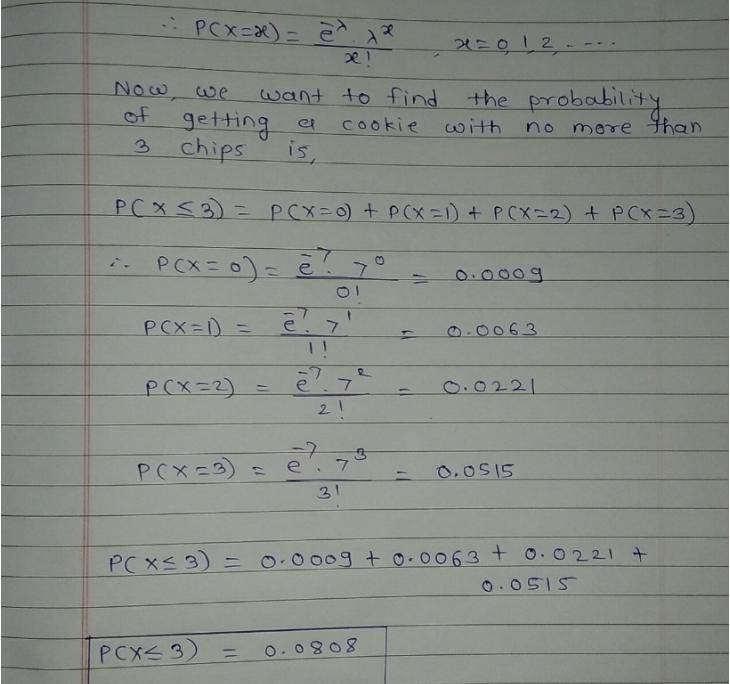 ∴ P(X=x) = e^-λ . λ^x / x! , x = 0, 1, 2, - ----
Now, we want to find the probability
of getting a cookie with no more than
3 chips is,
P(X ≤ 3) = P(X=0) + P(X=1) + P(X=2) + P(X=3)
∴ P(X=0) = e^-7 . 7^0 / 0! = 0.0009
P(X=1) = e^-7 . 7^1 / 1! = 0.0063
P(X=2) = e^-7 . 7^2 / 2! = 0.0221
P(X=3) = e^-7 . 7^3 / 3! = 0.0515
P(X≤3) = 0.0009 + 0.0063 + 0.0221 +
0.0515
P(X≤3) = 0.0808